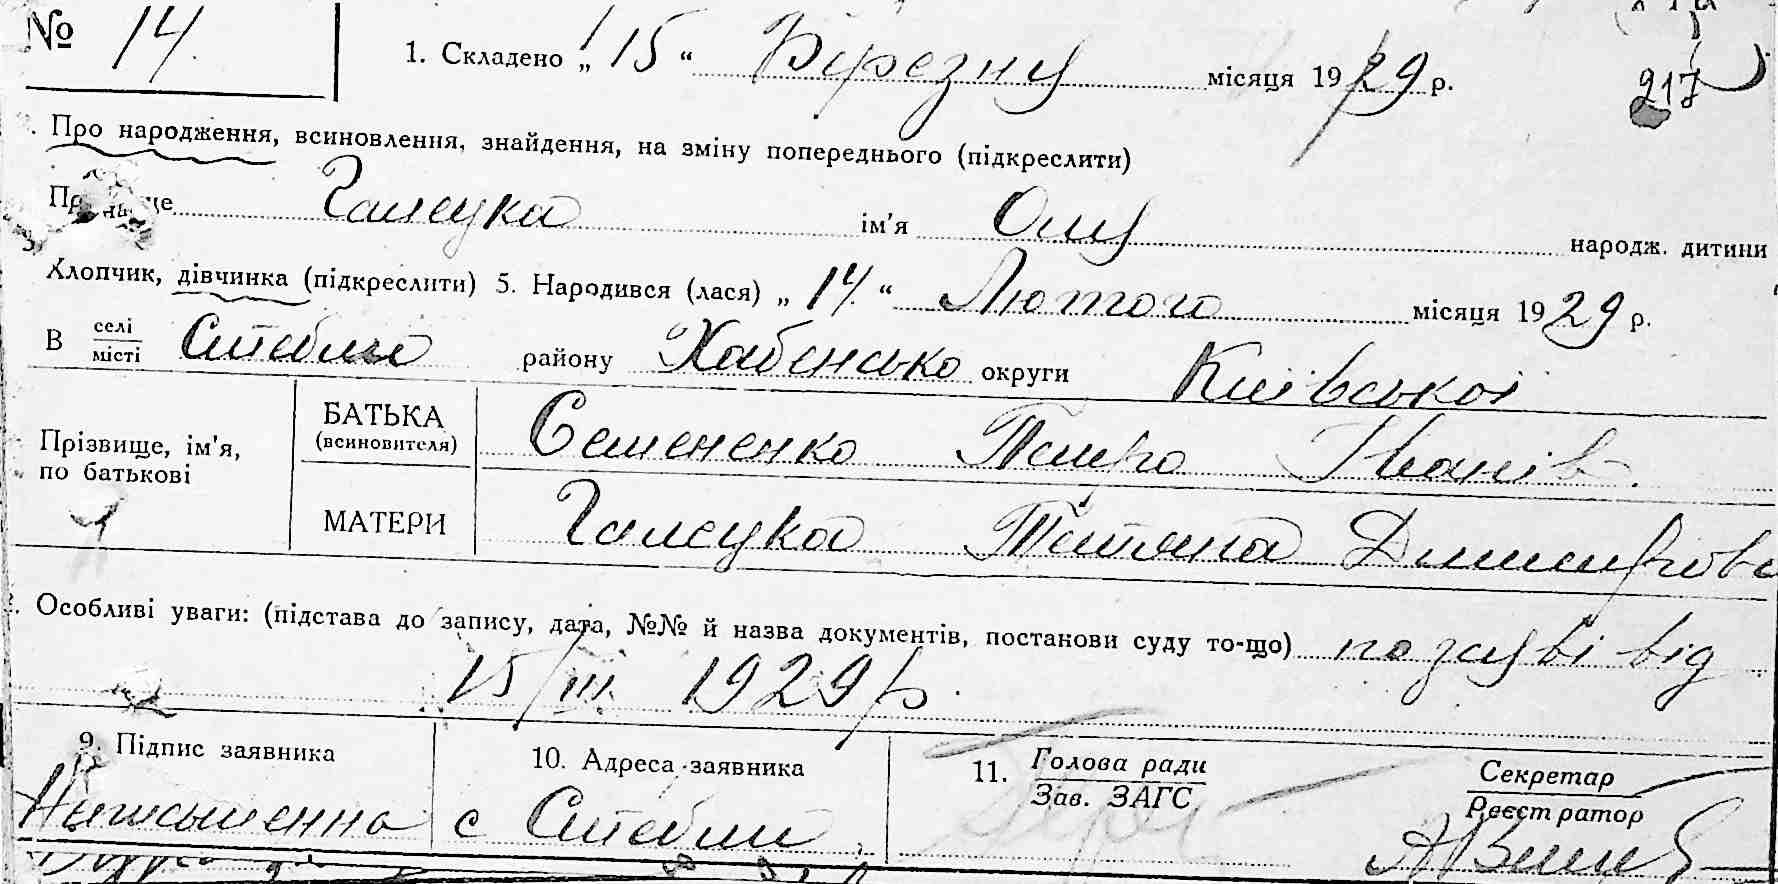 № 14. 1. Складено „15“ Березну місяця 1929 р. 217
Про народження, всиновлення, знайдення, на зміну попереднього (підкреслити)
Галецка ім'я Олу народж. дитини
Хлопчик, дівчинка (підкреслити) 5. Народився (лася) „14.“ Лютого місяця 1929 р.
В селі
місті Стебли району Хабенсько округи Київської
Прізвище, ім'я, по батькові
БАТЬКА (всиновителя) Семененко Петро Іванів.
МАТЕРИ Галецка Татяна Дмитрова
Особливі уваги: (підстава до запису, дата, №№ й назва документів, постанови суду то-що) по заяві від
15/III 1929 р.
9. Підпис заявника 10. Адреса заявника 11. Голова ради
Зав. ЗАГС Секретар
Реєстратор
с Стебли